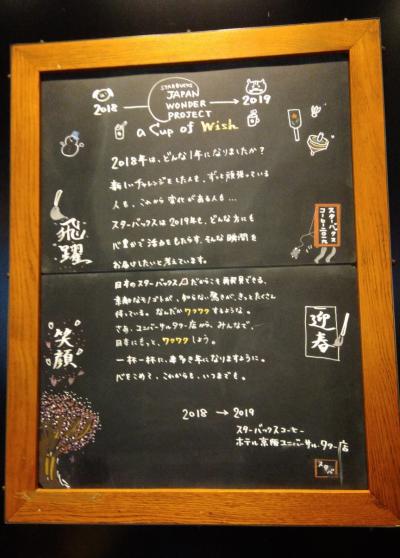 STARBUCKS
JAPAN
WONDER
PROJECT
2018
2019
a Cup of Wish
2018年は、どんな1年になりましたか？
新しいチャレンジをした人も、ずっと頑張っている
人も、これから変化がある人も…
スターバックスは2019年も、どんな方にも
心豊かで活力をもたらす、そんな瞬間を
お届けしたいと考えています。
飛躍
スターバックス
コーヒー二〇一九
日本のスターバックスだからこそ再発見できる、
素敵なモノゴトが、知らない驚きが、きっとたくさん
待っている。なんだかワクワクするような。
さあ、ユニバーサルタワー店から、みんなで、
日本にもっと、ワクワクしよう。
一杯一杯に、幸多き年になりますように。
心をこめて、これからも、いつまでも。
笑顔
迎春
2018 → 2019
スターバックスコーヒー
ホテル京阪ユニバーサル・タワー店
スタバ